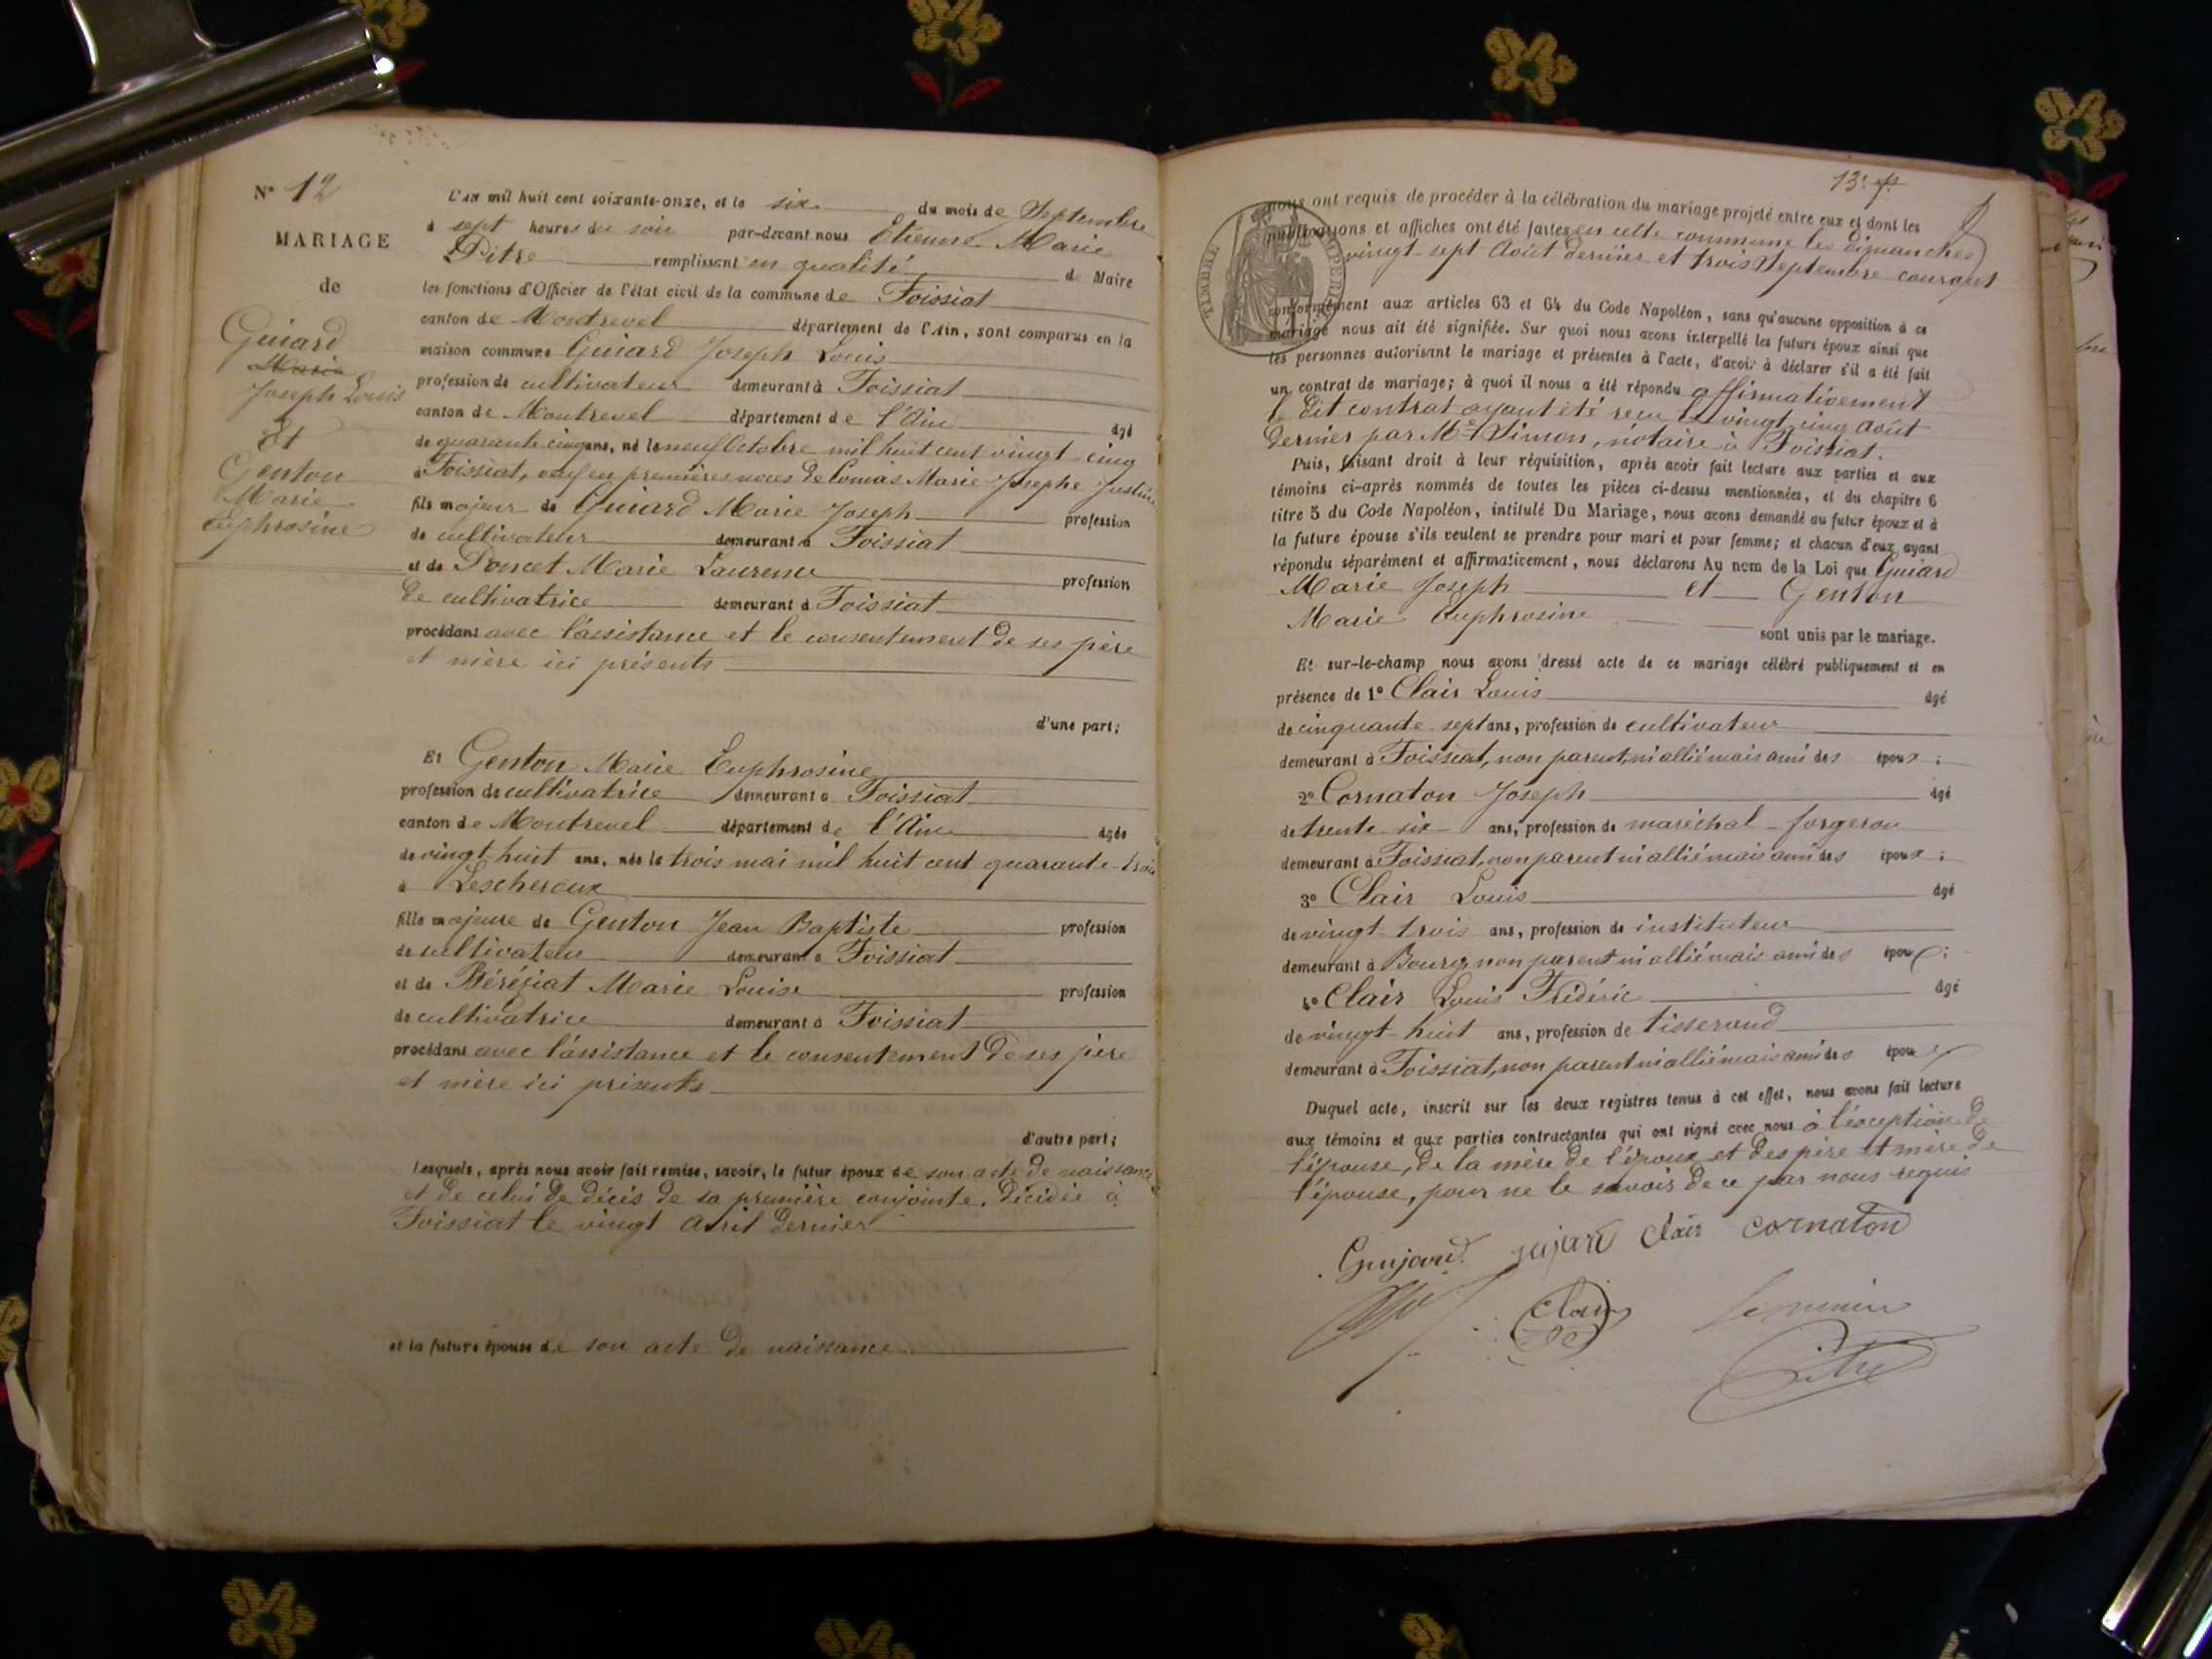 N° 12
MARIAGE
de
Guiard
Marie
Joseph Louis
Et
Genton
Marie
Euphrosine
L'an mil huit cent soixante-onze, et le six du mois de Septembre
à sept heures du soir par-devant nous Etienne Marie
Pitre remplissant en qualité de Maire
les fonctions d'Officier de l'état civil de la commune de Foissiat
canton de Montrevel département de l'Ain, sont comparus en la
maison commune Guiard Joseph Louis
profession de cultivateur demeurant à Foissiat
canton de Montrevel département de l'Ain âgé
de quarante cinq ans, né le neuf Octobre mil huit cent vingt cinq
à Foissiat, veuf en premières noces de Comas Marie Josephe Justine
fils majeur de Guiard Marie Joseph profession
de cultivateur demeurant à Foissiat
et de Poncet Marie Laurence profession
de cultivatrice demeurant à Foissiat
procédant avec l'assistance et le consentement de ses père
et mère ici présents
d'une part;
Et Genton Marie Euphrosine
profession de cultivatrice demeurant à Foissiat
canton de Montrevel département de l'Ain âgée
de vingt-huit ans, née le trois mai mil huit cent quarante-trois
à Lescheroux
fille majeure de Genton Jean Baptiste profession
de cultivateur demeurant à Foissiat
et de Béréziat Marie Louise profession
de cultivatrice demeurant à Foissiat
procédant avec l'assistance et le consentement de ses père
et mère ici présents
d'autre part;
Lesquels, après nous avoir fait remise, savoir, le futur époux de son acte de naissance
et de celui de décès de sa première conjointe, décidée à
Foissiat le vingt Avril dernier
et la future épouse de son acte de naissance
13e
TIMBRE IMPERIAL
nous ont requis de procéder à la célébration du mariage projeté entre eux et dont les
publications et affiches ont été faites en cette commune les dimanches
vingt-sept Août dernier et trois Septembre courant
conformément aux articles 63 et 64 du Code Napoléon, sans qu'aucune opposition à ce
mariage nous ait été signifiée. Sur quoi nous avons interpellé les futurs époux ainsi que
les personnes autorisant le mariage et présentes à l'acte, d'avoir à déclarer s'il a été fait
un contrat de mariage; à quoi il nous a été répondu affirmativement
le dit contrat ayant été reçu le vingt cinq Août
dernier par Me Simon, notaire à Foissiat.
Puis, faisant droit à leur réquisition, après avoir fait lecture aux parties et aux
témoins ci-après nommés de toutes les pièces ci-dessus mentionnées, et du chapitre 6
titre 5 du Code Napoléon, intitulé Du Mariage, nous avons demandé au futur époux et à
la future épouse s'ils veulent se prendre pour mari et pour femme; et chacun d'eux ayant
répondu séparément et affirmativement, nous déclarons Au nom de la Loi que Guiard
Marie Joseph et Genton
Marie Euphrosine
sont unis par le mariage.
Et sur-le-champ nous avons dressé acte de ce mariage célébré publiquement et en
présence de 1° Clair Louis âgé
de cinquante-sept ans, profession de cultivateur
demeurant à Foissiat, non parent, ni allié mais ami des époux;
2° Cornaton Joseph âgé
de trente-six ans, profession de maréchal-forgeron
demeurant à Foissiat, non parent ni allié mais ami des époux;
3° Clair Louis âgé
de vingt-trois ans, profession de instituteur
demeurant à Bourg, non parent ni allié mais ami des époux;
4° Clair Louis Frédéric âgé
de vingt-huit ans, profession de tisserand
demeurant à Foissiat, non parent ni allié mais ami des époux
Duquel acte, inscrit sur les deux registres tenus à cet effet, nous avons fait lecture
aux témoins et aux parties contractantes qui ont signé avec nous à l'éxception de
l'épouse, de la mère de l'époux et des père et mère de
l'épouse, pour ne le savoir de ce par nous requis
Gujard gujard Clair Cornaton
Clair
Pitre